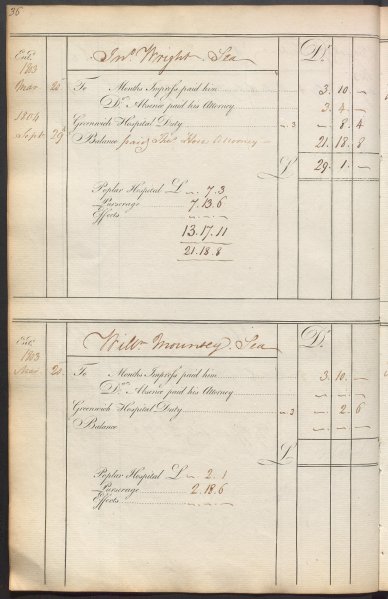 36
Jnº Wright Sea Dr
1803
Mar 20 To Months Imprest paid him 3. 10. —
Do Absence paid his Attorney 3. 4. —
1804
Greenwich Hospital Duty — 3 — 8. 4
Sept 29 Balance paid Thos Attorney — 21. 18. 8
£ 29. 1. —
Poplar Hospital £ — 7. 3
Purserage 7. 13. 6
Effects — . — . —
13. 17. 11
21. 18. 8
Willm Mounsey Sea Dr
1803
20 To Months Imprest paid him 3. 10. —
Do Absence paid his Attorney — — —
Greenwich Hospital Duty — 3 — 2. 6
Balance — — —
£
Poplar Hospital £ — 2. 1
Purserage 2. 18. 6
Effects — . — . —